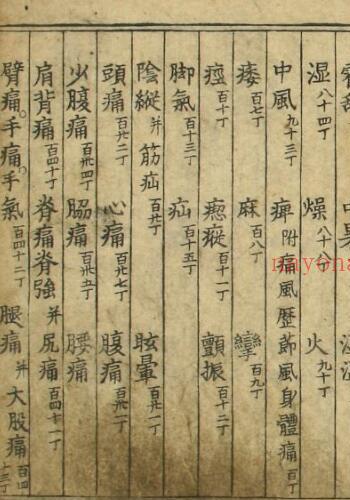 湿八十四丁 燥八十八丁 火九十丁
中風九十三丁 痺附痛風歴節風身體痛百丁
痿百七丁 麻百八丁 攣百九丁
痙百十丁 瘛瘲百十一丁 顫振百十二丁
脚氣百十三丁 疝百十五丁
陰縱并筋疝百廿丁 眩暈百廿一丁
頭痛百廿二丁 心痛百廿七丁 腹痛百卅一丁
少腹痛百卅四丁 脇痛百卅五丁 腰痛
肩背痛百四十丁 脊痛脊強并尻痛百四十一丁
臂痛。手痛。手氣百四十二丁 腿痛并大股痛百四十三丁